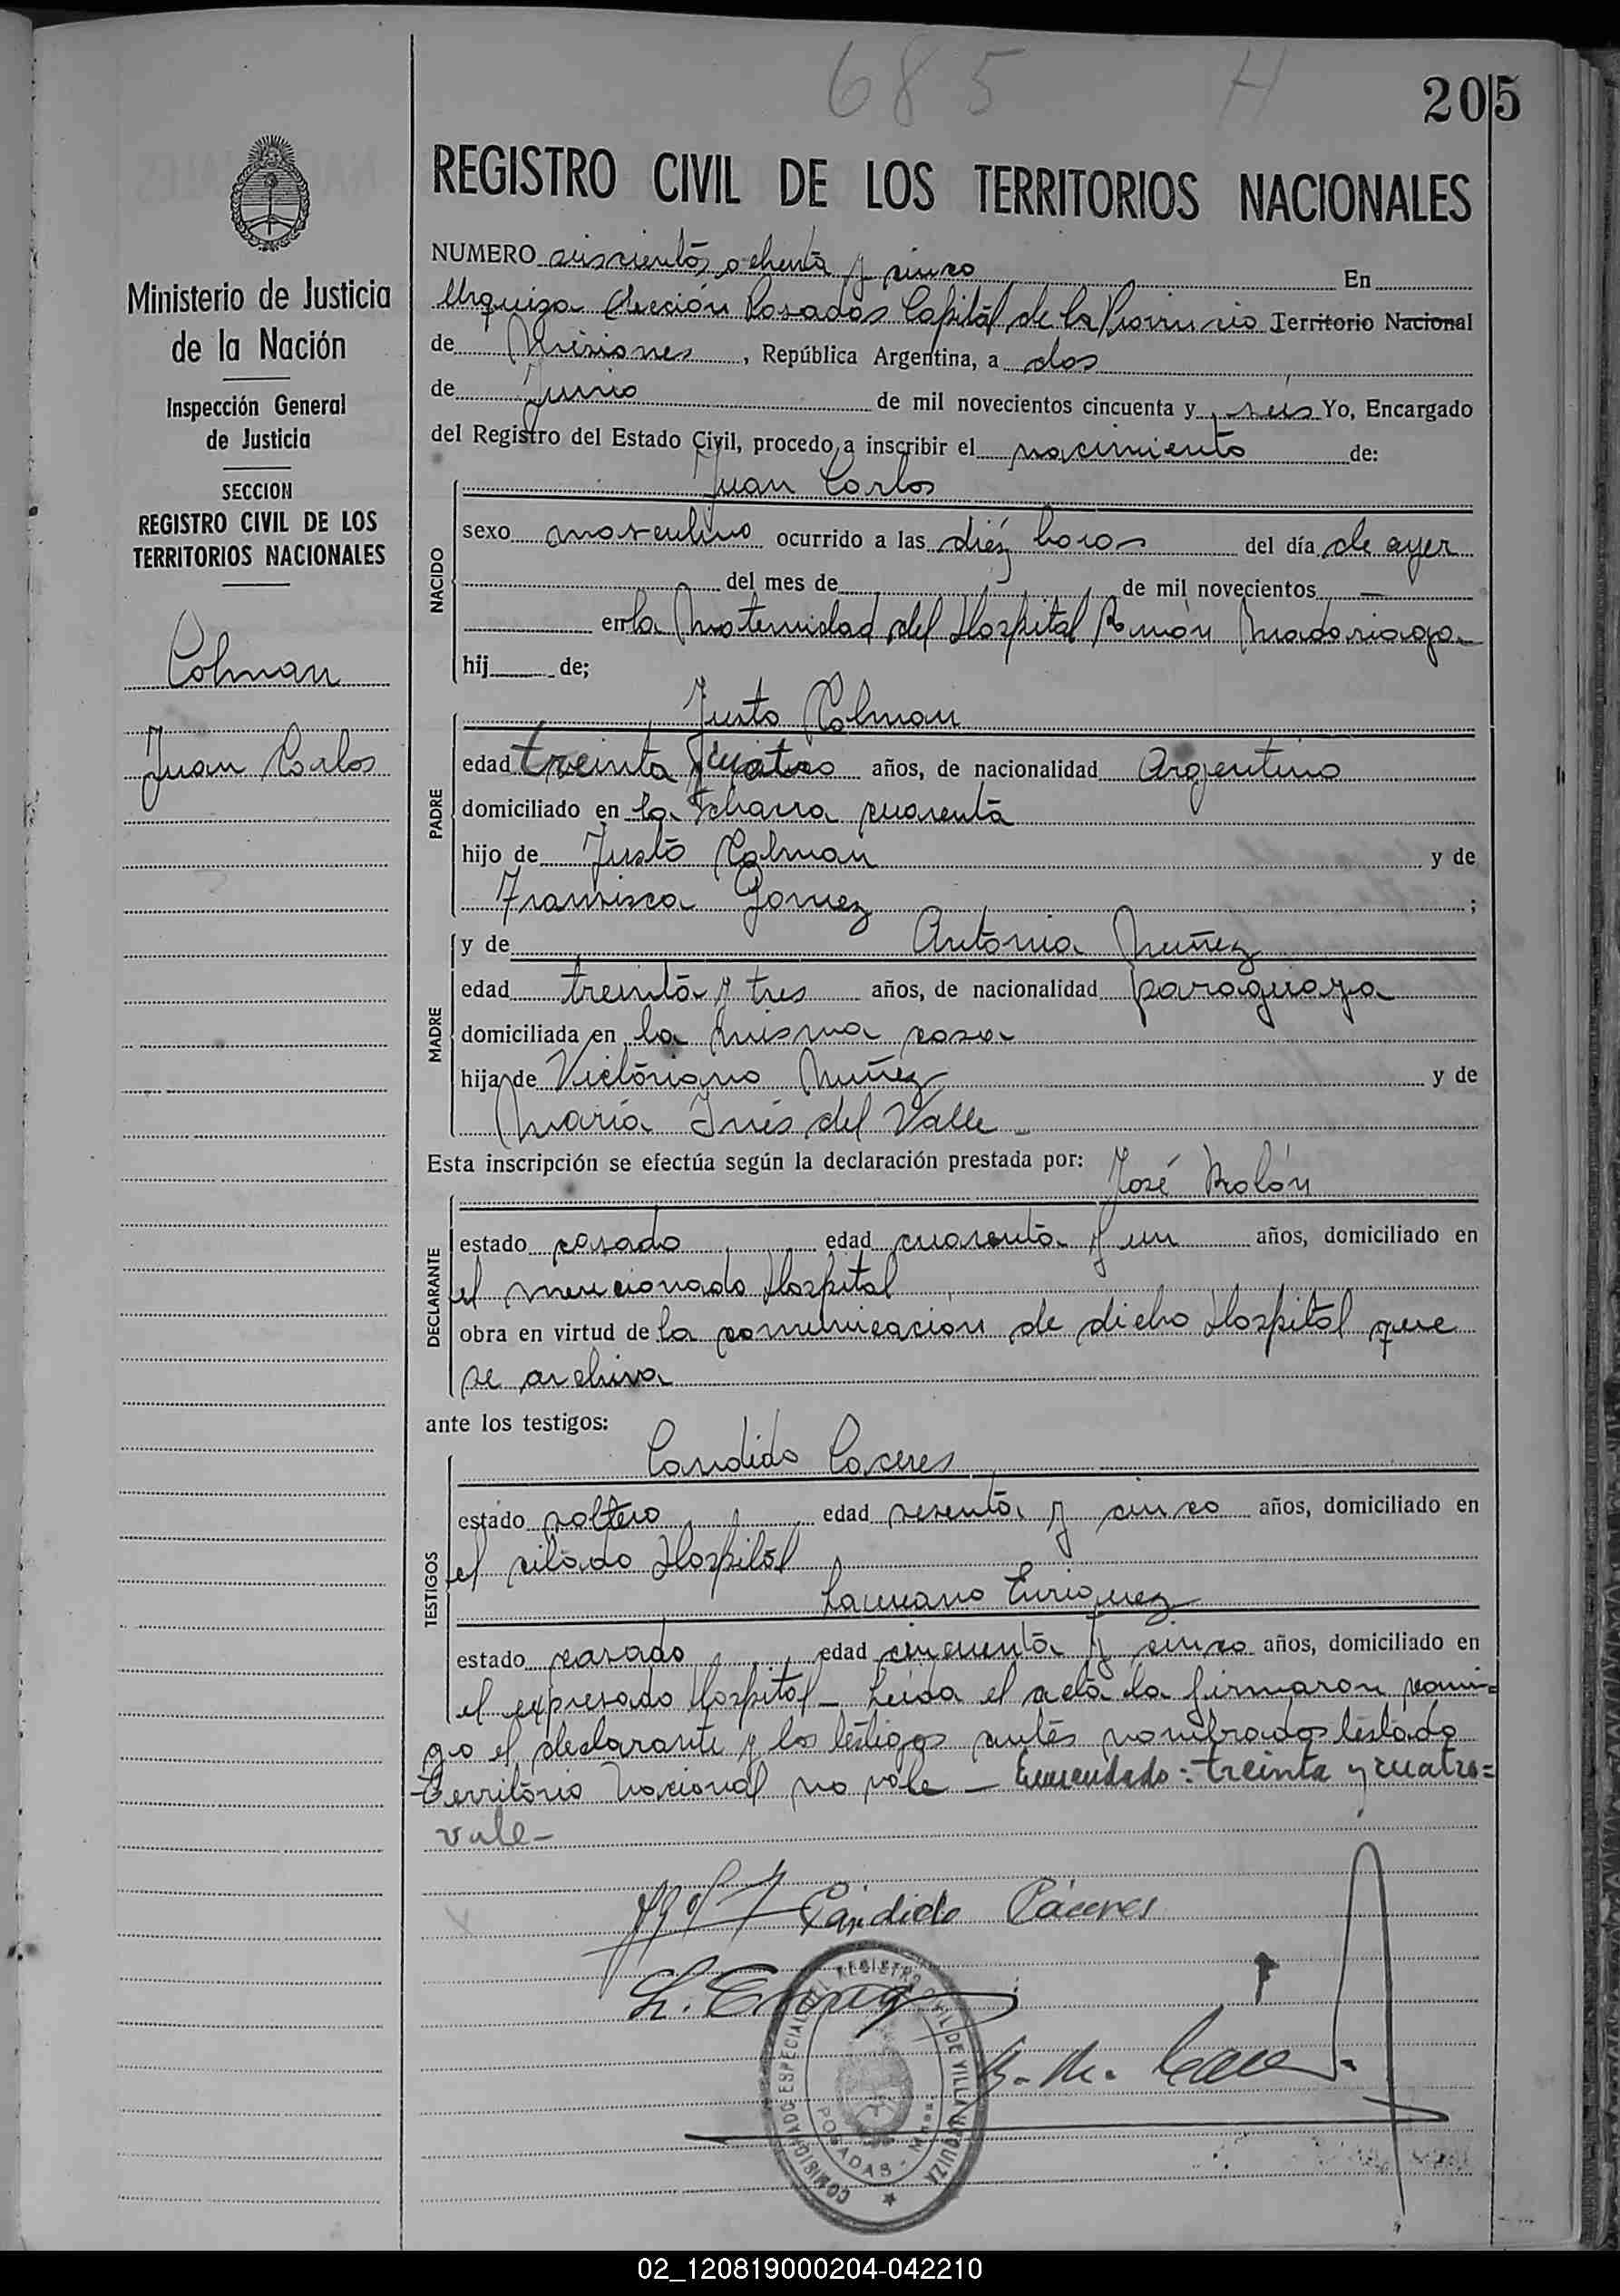 685 H
205
REGISTRO CIVIL DE LOS TERRITORIOS NACIONALES
Ministerio de Justicia
de la Nación
Inspección General
de Justicia
SECCION
REGISTRO CIVIL DE LOS
TERRITORIOS NACIONALES
Colman
Juan Carlos
NUMERO seiscientos ochenta y cinco En
Urquiza Sección Posadas Capital de la Provincia Territorio Nacional
de Misiones, República Argentina, a dos
de Junio de mil novecientos cincuenta y seis Yo, Encargado
del Registro del Estado Civil, procedo a inscribir el nacimiento de:
Juan Carlos
NACIDO
sexo masculino ocurrido a las diéz horas del día de ayer
del mes de de mil novecientos —
en la Maternidad del Hospital Ramón Madariaga
hij de;
Justo Colman
PADRE
edad treinta y cuatro años, de nacionalidad Argentino
domiciliado en la chacra cuarenta
hijo de Justo Colman y de
Francisca Gomez ;
MADRE
y de Antonia Nuñez
edad treinta y tres años, de nacionalidad paraguaya
domiciliada en la misma casa
hija de Victoriano Nuñez y de
María Inés del Valle -
Esta inscripción se efectúa según la declaración prestada por: José Molón
DECLARANTE
estado casado edad cuarenta y un años, domiciliado en
el mencionado Hospital
obra en virtud de la comunicación de dicho Hospital que
se archiva
ante los testigos:
Candido Caceres
TESTIGOS
estado soltero edad sesenta y cinco años, domiciliado en
el citado Hospital
Laureano Enriquez
estado casado edad cincuenta y cinco años, domiciliado en
el expresado Hospital - Leida el acta la firmaron conmi-
go el declarante y los testigos antes nombrados testado
territorio Nacional no vale - Enmendado: treinta y cuatro=
vale-
Cándido Cáceres
L. Enriq
COMISIONADO ESPECIAL DEL REGISTRO CIVIL DE VILLA URQUIZA
POSADAS - Mnes.
02_120819000204-042210